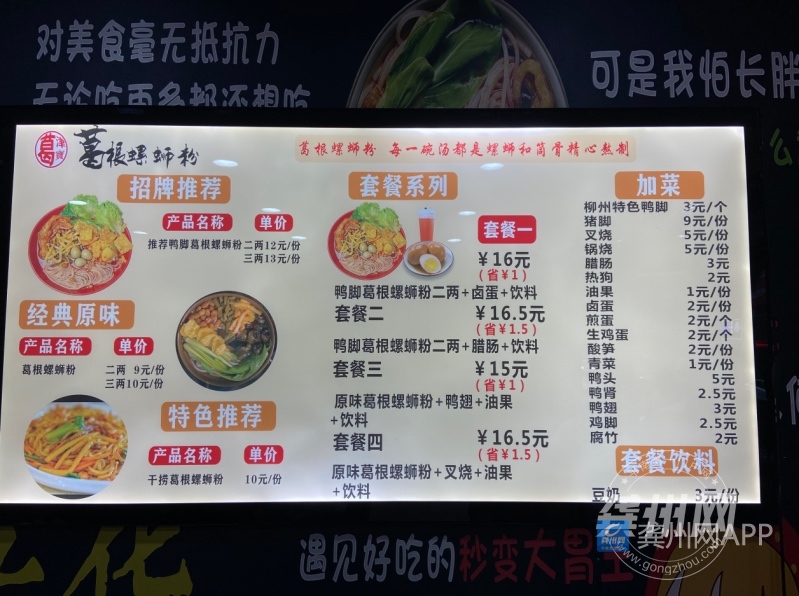 对美食毫无抵抗力
无论吃再多都还想吃
可是我怕长胖
葛 海寶
葛根螺蛳粉
葛根螺蛳粉 每一碗汤都是螺蛳和筒骨精心熬制
招牌推荐
产品名称 单价
推荐鸭脚葛根螺蛳粉 二两12元/份
三两13元/份
经典原味
产品名称 单价
葛根螺蛳粉 二两 9元/份
三两10元/份
特色推荐
产品名称 单价
干捞葛根螺蛳粉 10元/份
套餐系列
套餐一
¥16元
(省¥1)
鸭脚葛根螺蛳粉二两+卤蛋+饮料
套餐二 ¥16.5元
(省¥1.5)
鸭脚葛根螺蛳粉二两+腊肠+饮料
套餐三 ¥15元
(省¥1)
原味葛根螺蛳粉+鸭翅+油果
+饮料
套餐四 ¥16.5元
(省¥1.5)
原味葛根螺蛳粉+叉烧+油果
+饮料
加菜
柳州特色鸭脚 3元/个
猪脚 9元/份
叉烧 5元/份
锅烧 5元/份
腊肠 3元
热狗 2元
油果 1元/份
卤蛋 2元/份
煎蛋 2元/个
生鸡蛋 2元/个
酸笋 2元/份
青菜 1元/份
鸭头 5元
鸭肾 2.5元
鸭翅 3元
鸡脚 2.5元
腐竹 2元
套餐饮料
豆奶 3元/份
遇见好吃的秒变大胃王
龚州网
龚州网APP
www.gongzhou.com